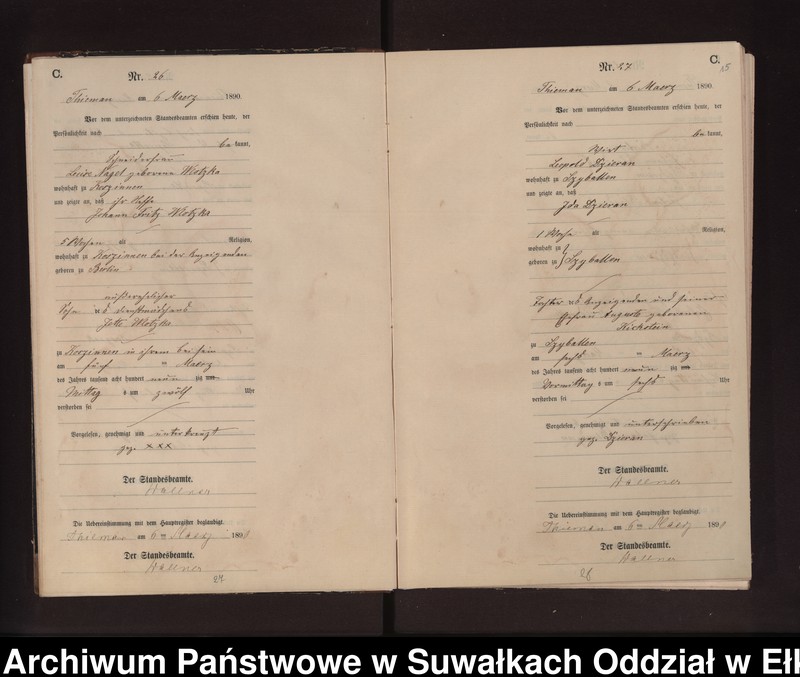 C.
Nr. 26
Thieman am 6 Maerz 1890.
Vor dem unterzeichneten Standesbeamten erschien heute, der
Persönlichkeit nach
be kannt,
Schneiderfrau
Luise Nagel geborene Wlotzka
wohnhaft zu
und zeigte an, daß ihr Neffe
Johann Fritz Wlotzka
5 Wochen alt Religion,
wohnhaft zu bei der Anzeigenden
geboren zu Berlin
außerehelicher
Sohn des Dienstmädchens
Jette Wlotzka
zu in ihrem beisein
am fünf ten Maerz
des Jahres tausend acht hundert neun zig
Mittag s um zwölf Uhr
verstorben sei
Vorgelesen, genehmigt und unterkreuzt
gez. XXX
Der Standesbeamte.
Wallner
Die Uebereinstimmung mit dem Hauptregister beglaubigt.
Thieman am 6ten Maerz 1890
Der Standesbeamte.
Wallner
27
C.
Nr. 27
Thieman am 6 Maerz 1890.
Vor dem unterzeichneten Standesbeamten erschien heute, der
Persönlichkeit nach
be kannt,
Wirt
Leopold Dzieran
wohnhaft zu Szyballen
und zeigte an, daß
Ida Dzieran
1 Woche alt Religion,
wohnhaft zu
geboren zu } Szyballen
Tochter des Anzeigenden und seiner
Ehefrau Auguste geborenen
zu Szyballen
am sechs ten Maerz
des Jahres tausend acht hundert neun zig
Vormittag s um sechs Uhr
verstorben sei
Vorgelesen, genehmigt und unterschrieben
gez. Dzieran
Der Standesbeamte.
Wallner
Die Uebereinstimmung mit dem Hauptregister beglaubigt.
Thieman am 6ten Maerz 1890
Der Standesbeamte.
Wallner
28
Archiwum Państwowe w Suwałkach Oddział w Ełk